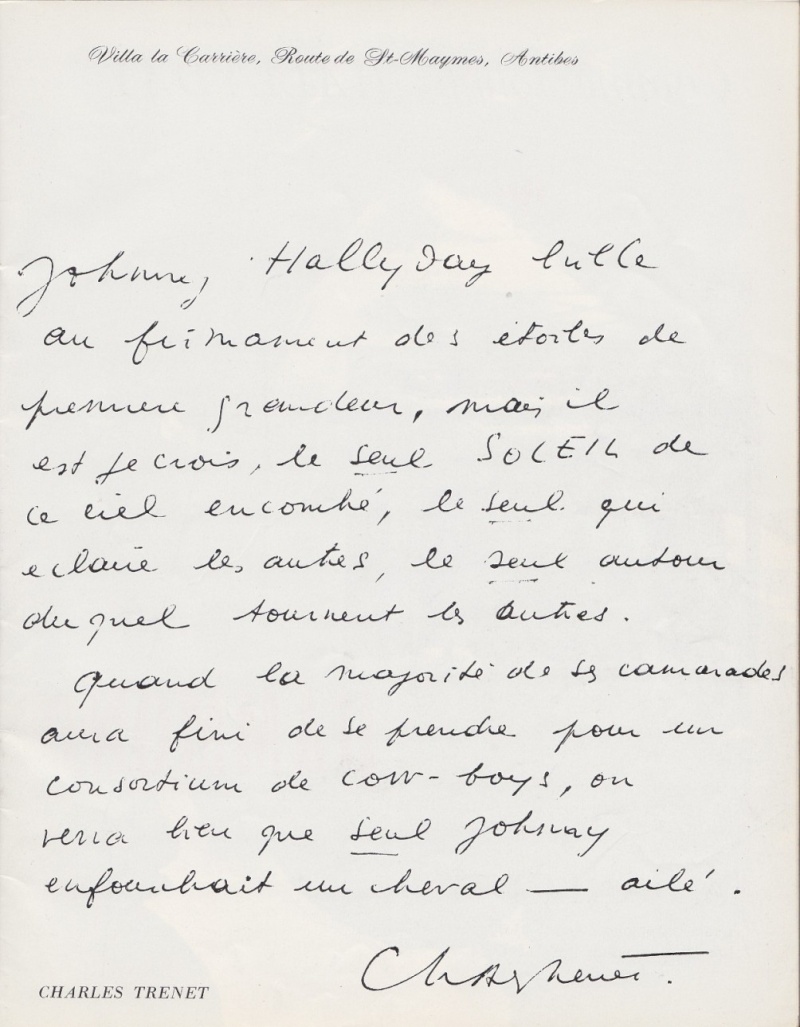 Villa la Carrière, Route de St-Maymes, Antibes
Johnny Hallyday brille
au firmament des étoiles de
première grandeur, mais il
est je crois, le seul SOLEIL de
ce ciel encombré, le seul qui
eclaire les autres, le seul autour
du quel tournent les autres.
Quand la majorité de ses camarades
aura fini de se prendre pour un
consortium de cow-boys, on
verra bien que seul Johnny
enfourchait un cheval — ailé.
Charles Trenet.
CHARLES TRENET